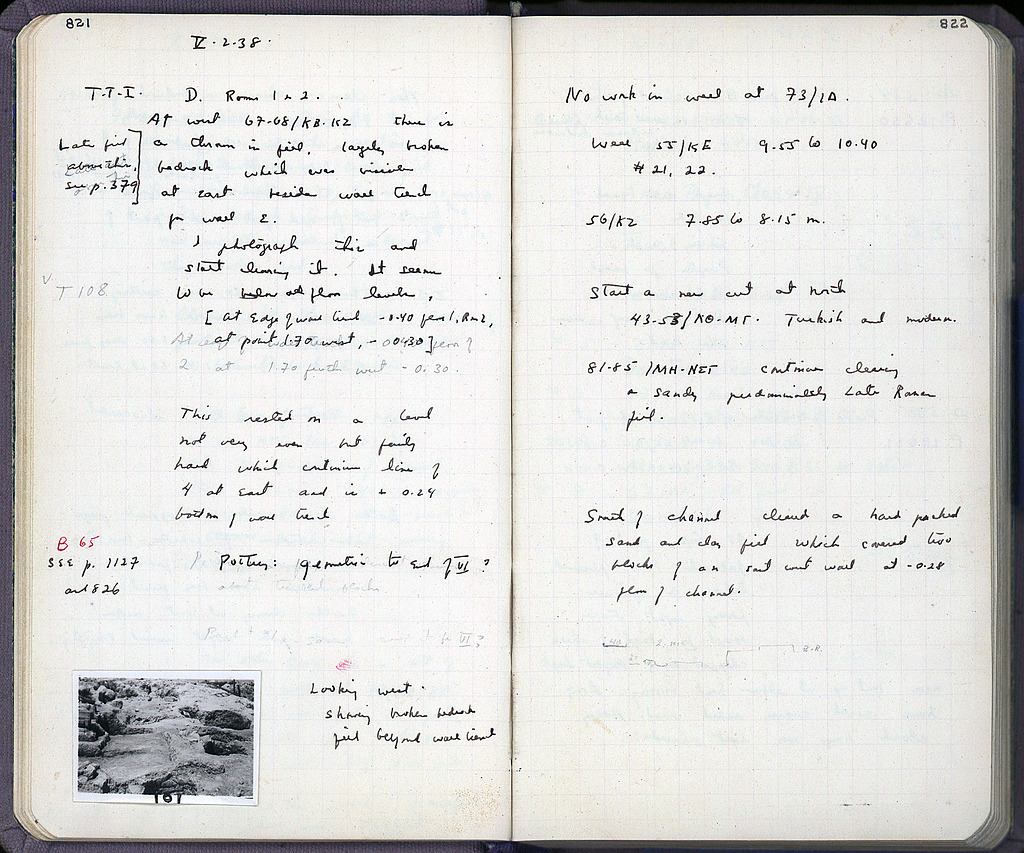 821
V.2.38.
T.T.I. D. Rooms 1 & 2.
At west 67-68/KB-K2 there is
Late fill
a thrown in fill. largely broken
above this.
bedrock which was visible
see p. 379
at East beside wall trench
for wall E.
I photograph this and
start cleaning it. It seems
T 108
to be below at floor levels,
[at Edge of wall trench -0.40 from 1, Rm 2,
at point 1.70 west, -
2 at 1.70 further west - 0.30.
This rested on a level
not very even but fairly
hard which continues line of
4 at East and is + 0.24
bottom of wall trench
B 65
SEE p. 1127
and 826
Pottery: geometric to End of VI ?
Looking west.
showing broken bedrock
fill beyond wall trench
161
822
No work in well at 73/ΙΑ.
Well 55/ΚΕ 9.55 to 10.40
# 21, 22.
56/KZ 7.85 to 8.15 m.
Start a new cut at north
43-58/ΚΘ-ΜΓ. Turkish and modern.
81-85/ΜΗ-ΝΣΤ continue clearing
a sandy predominately Late Roman
fill.
South of channel cleared a hard packed
sand and clay fill which covered two
blocks of an east west wall at -0.28
from channel.
B.R.